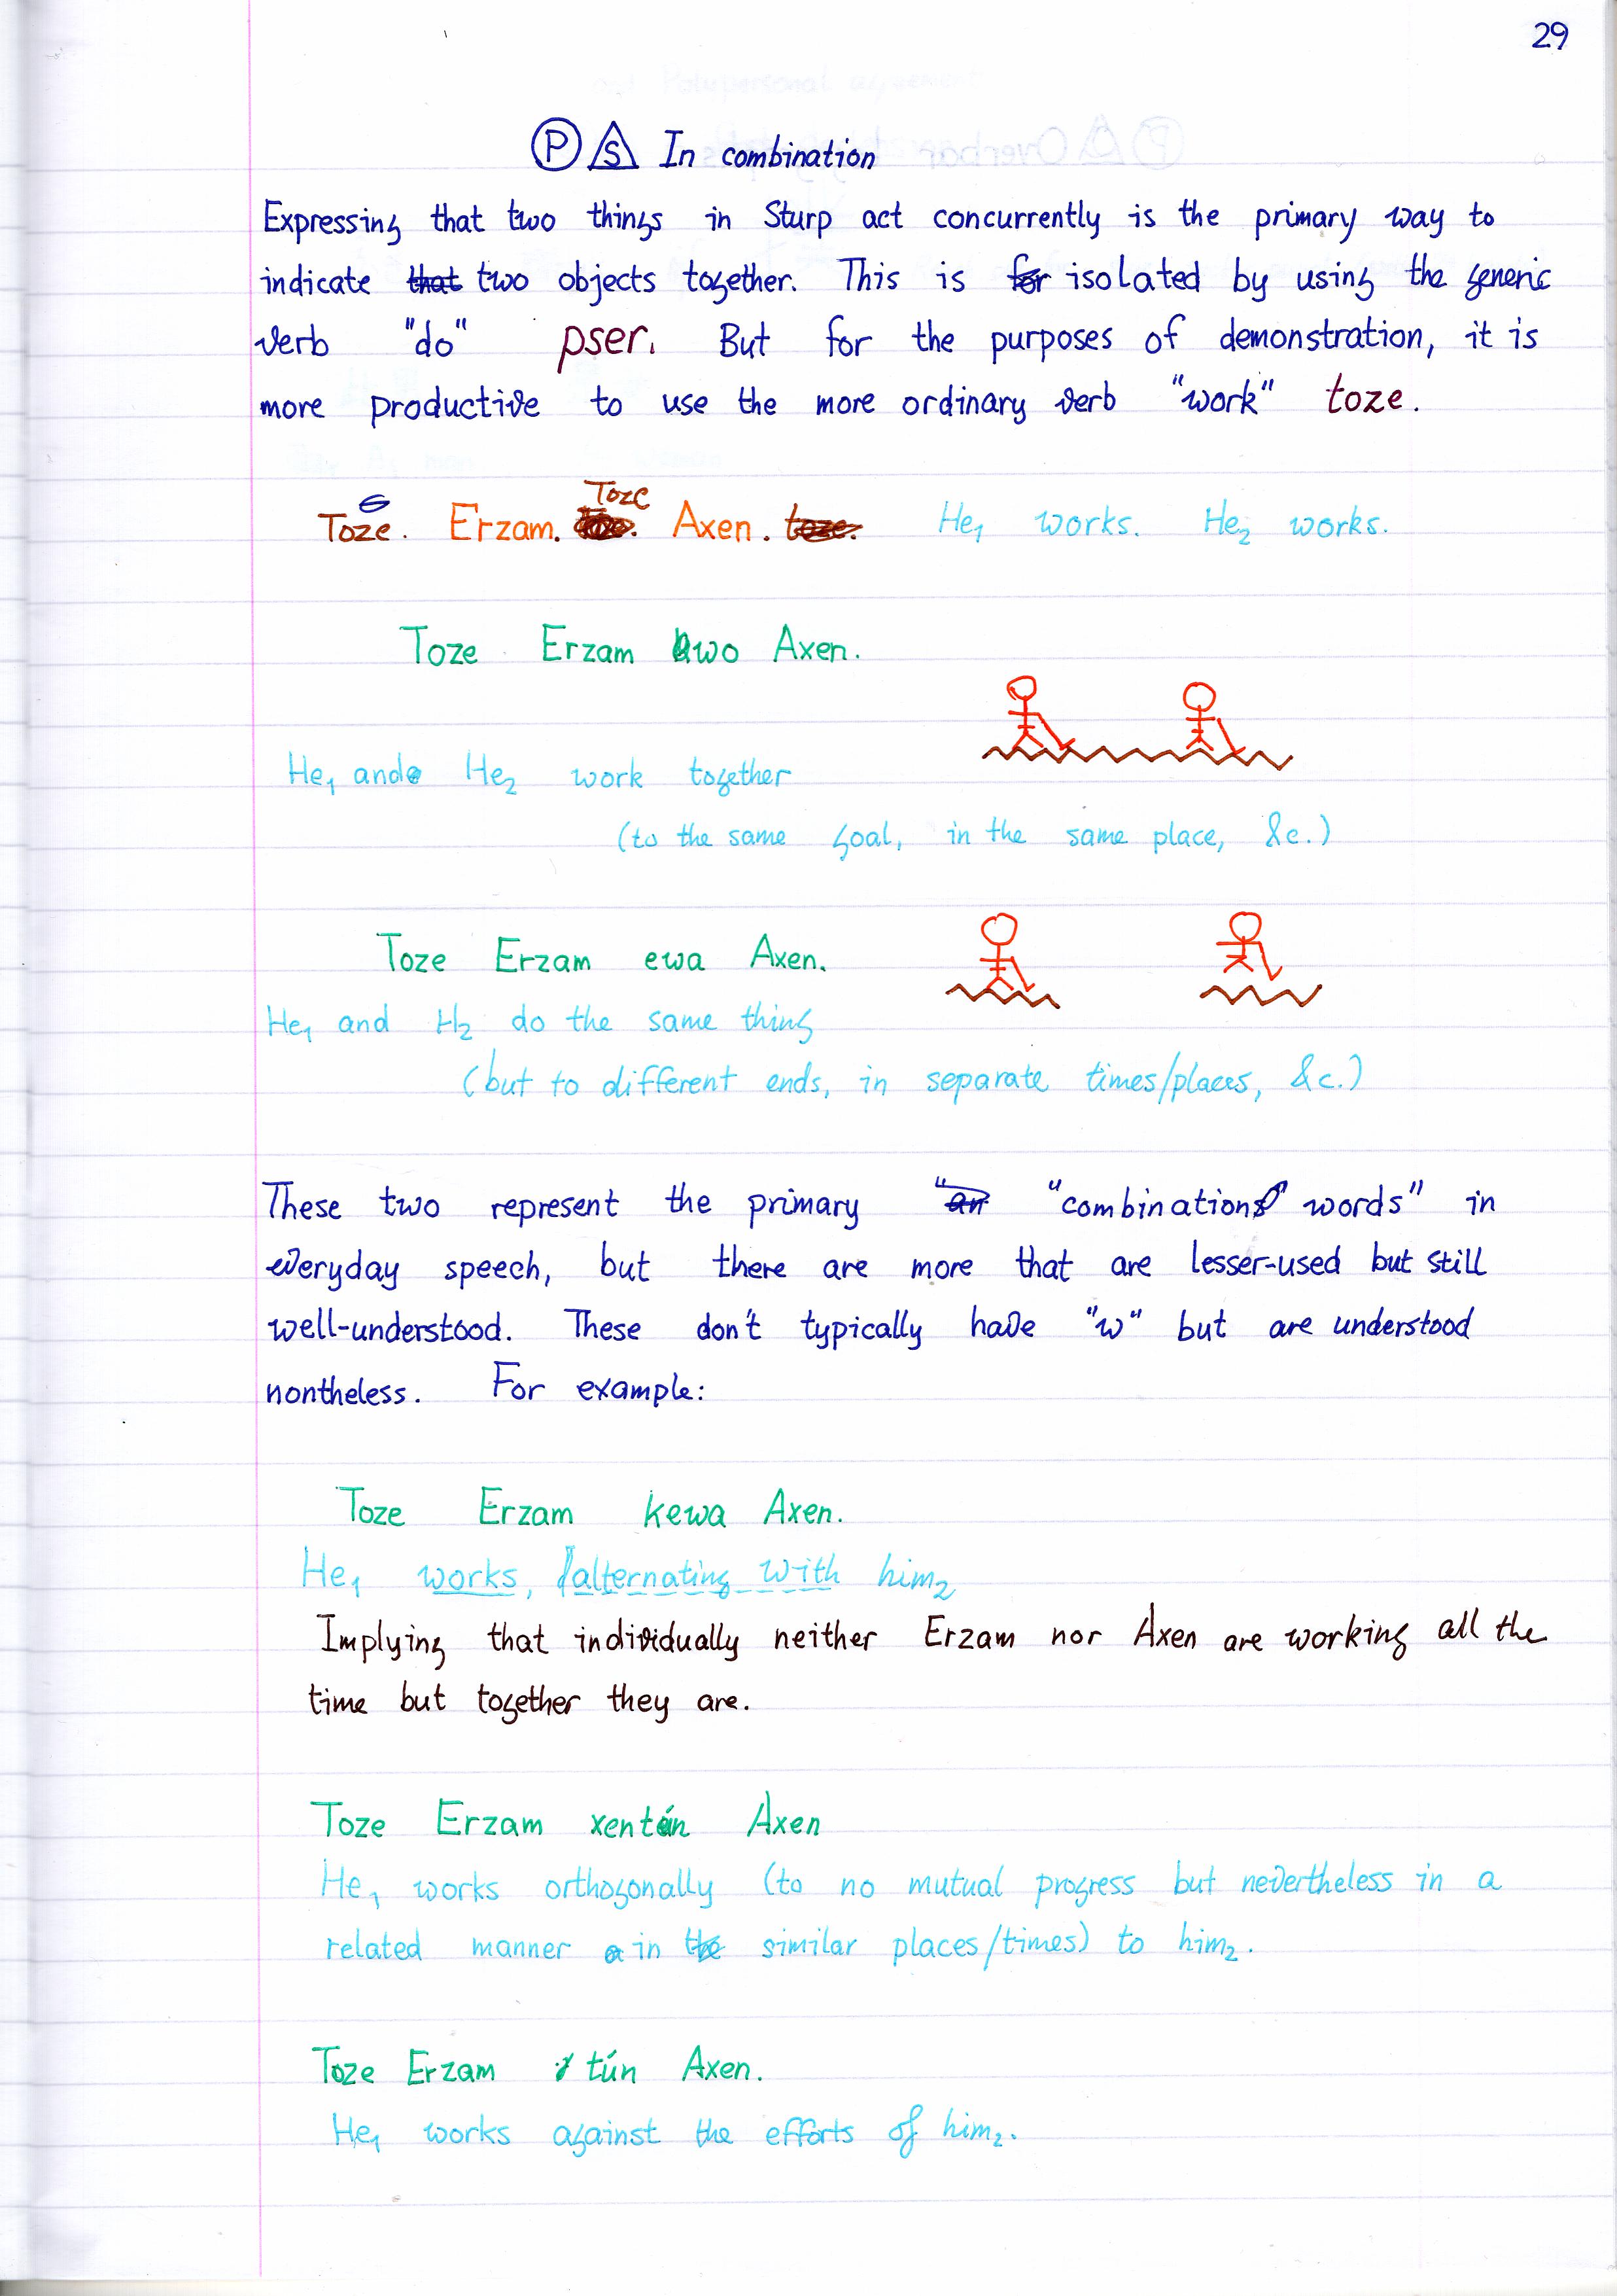 29
P S In combination
Expressing that two things in Sturp act concurrently is the primary way to
indicate that two objects together. This is for isolated by using the generic
verb "do" pser. But for the purposes of demonstration, it is
more productive to use the more ordinary verb "work" toze.
Toze
Toze. Erzam. Axen. toze. He₁ works. He₂ works.
Toze Erzam wo Axen.
He₁ and He₂ work together
(to the same goal, in the same place, &c.)
Toze Erzam ewa Axen.
He₁ and H₂ do the same thing
(but to different ends, in separate times/places, &c.)
These two represent the primary "an "combination words" in
everyday speech, but there are more that are lesser-used but still
well-understood. These don't typically have "w" but are understood
nontheless. For example:
Toze Erzam kewa Axen.
He₁ works, alternating with him₂
Implying that individually neither Erzam nor Axen are working all the
time but together they are.
Toze Erzam xentún Axen
He₁ works orthogonally (to no mutual progress but nevertheless in a
related manner in the similar places/times) to him₂.
Toze Erzam tún Axen.
He₁ works against the efforts of him₂.